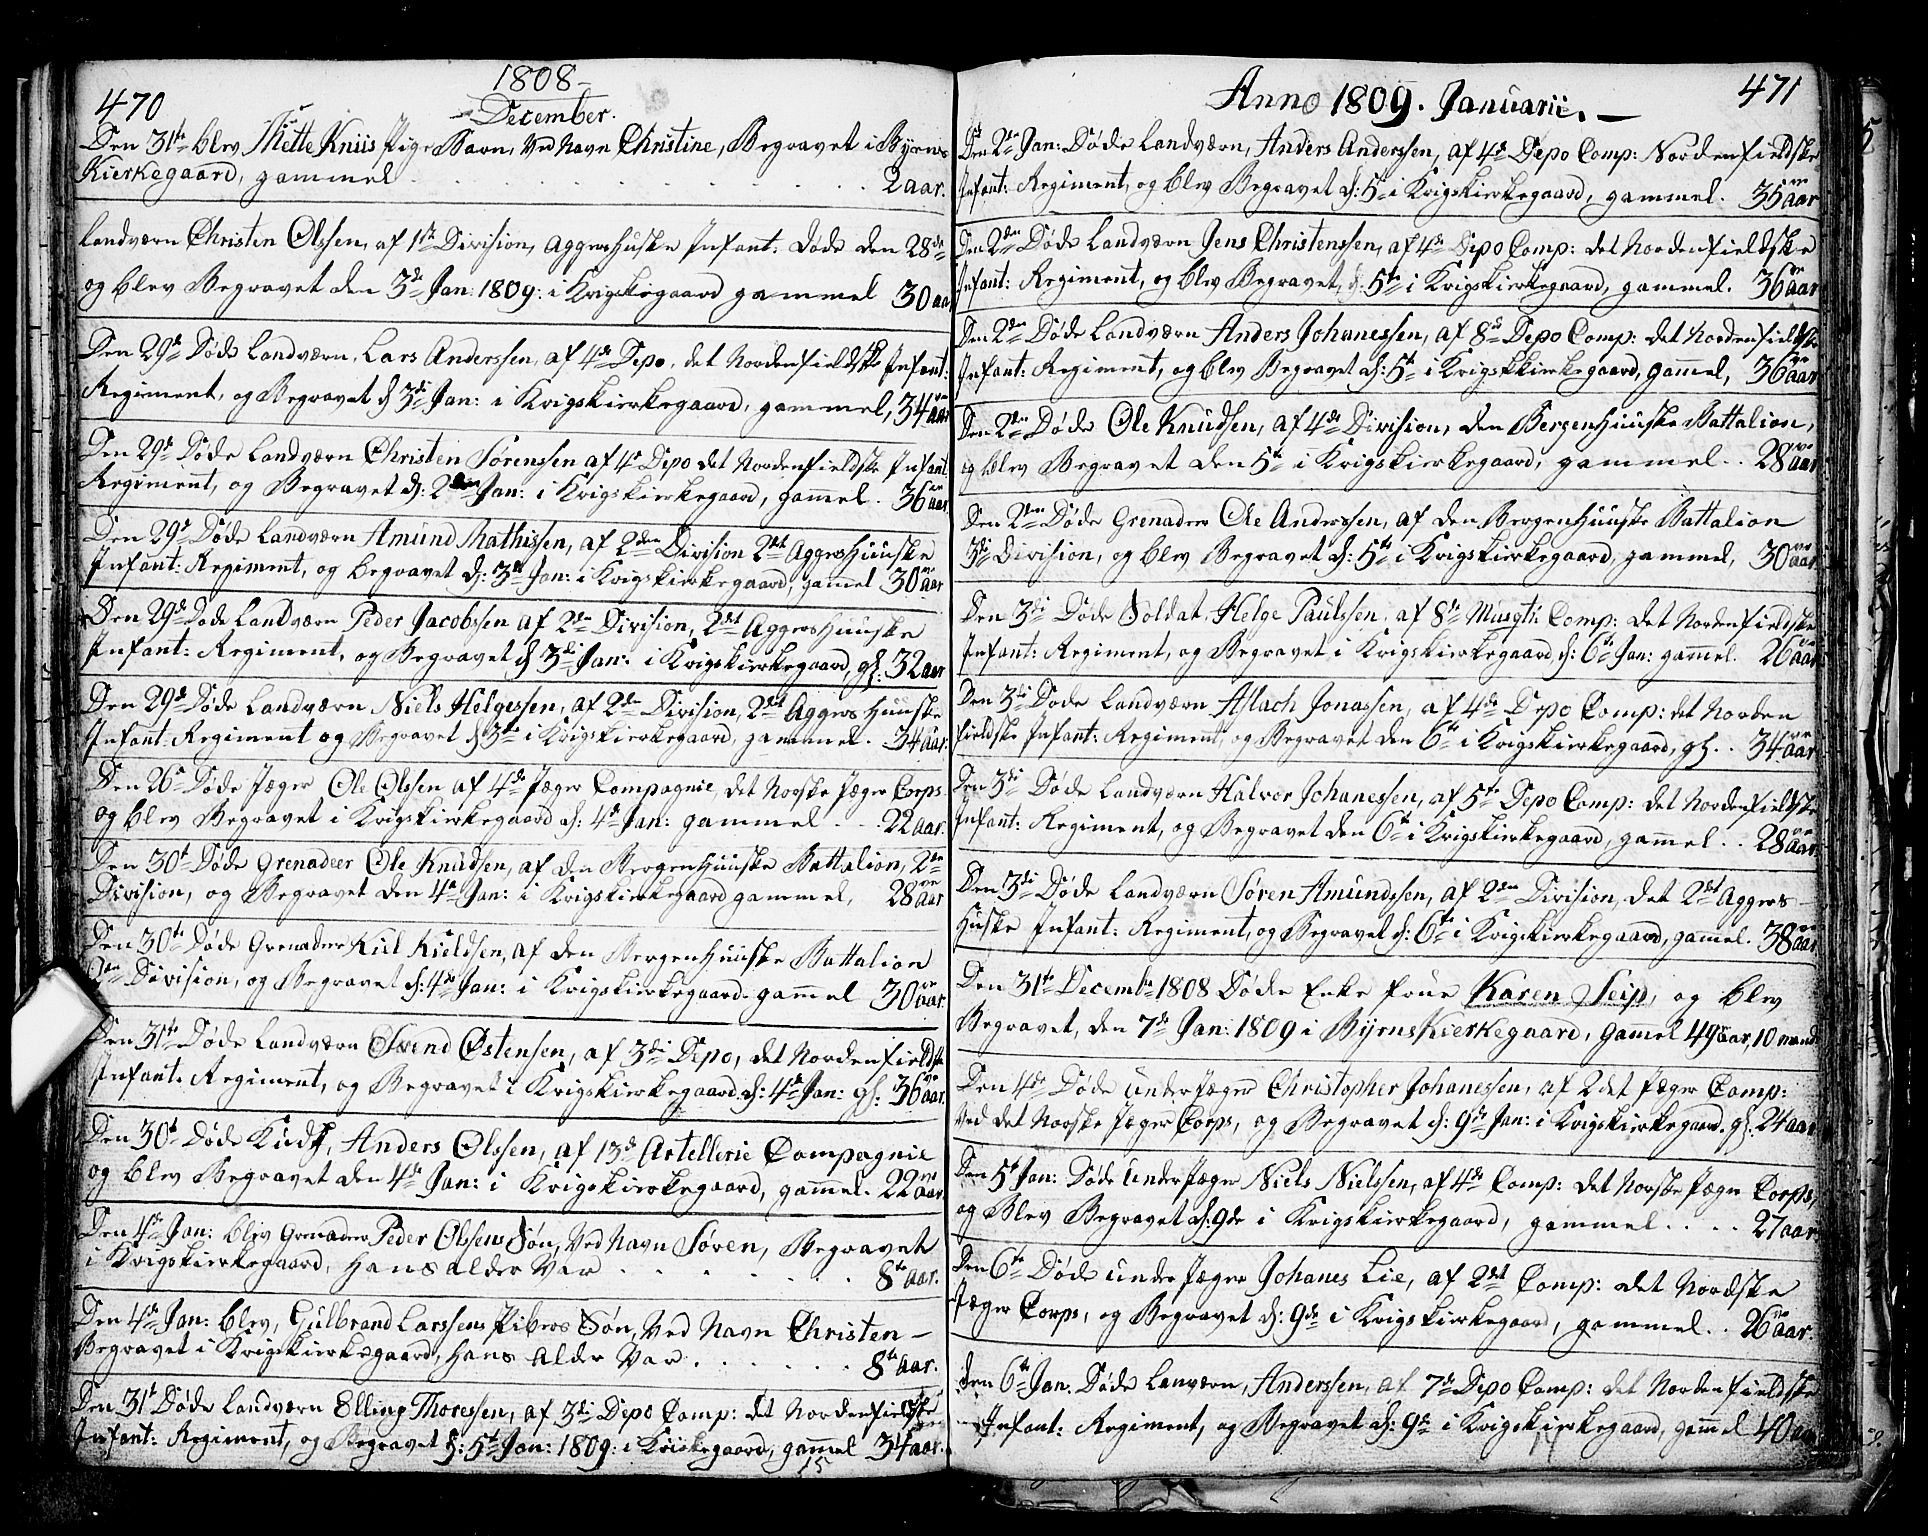 470
1808
December.
Den 31te blev Mette Kniis Pige Barn, Ved Navn Christine, Begravet i Byens
Kierkegaard, gammel . . . 2 aar.
Landværn Christen Olssen, af 1ste Division, Aggershuske Infant: døde den 28de
og blev Begravet den 3de Jan: 1809: i Krigskirkegaard gammel 30 aa
Den 29de Døde Landværn, Lars Anderssen, af 4de Depo, det Nordenfieldske Infant:
Regiment, og Begravet d 3di Jan: i Krigskierkegaard, gammel, 34 aar
Den 29de Døde Landværn Christen Sörenssen af 4de Depo det Nordenfieldske Infant
Regiment, og Begravet d: 2den Jan: i Krigskierkegaard, gamel. 36 aar
Den 29de Døde Landværn Amund Mathissen, af 2den Division 2det Aggershuuske
Infant: Regiment, og begravet d: 3de Jan: i Krigskierkegaard, gamel 30 aar
Den 29de Døde Landværn Peder Jacobssen af 2den Division, 2det Aggershuuske
Infant: Regiment, og Begravet d 3di Jan: i Krigskierkegaard, gl: 32 aar
Den 29de Døde Landværn Niels Helgessen, af 2den Division, 2det Aggershuuske
Infant: Regiment og Begravet d 3de i Krigskierkegaard, gammel. 34 aar.
Den 26de Døde Jæger Ole Olssen af 4de Jæger Compagnie, det Norske Jæger Corps
og blev Begravet i Krigskierkegaard d: 4de Jan: gammel . . . 22 aar.
Den 30te Døde Grenadeer Ole Knudsen, af den Bergenhuuske Battalion, 2den
Division, og Begravet den 4de Jan: i Krigskierkegaard gammel, 28 aar
Den 30te Døde Grenadeer Kiel Kieldsen, af den Bergenhuuske Battalion
2den Division, og Begravet d: 4de Jan: i Krigskierkegaard gamel 30 aar.
Den 31te Døde Landværn Svend Østensen, af 3di Depo, det Nordenfieldske
Infant. Regiment, og Begravet i Krigskierkegaard d: 4de Jan: gl: 36 aar.
Den 30te Døde Kudsk, Anders Olssen, af 13de Artellerie Compagnie
og blev Begravet den 4de Jan: i Krigskierkegaard, gamel. 22 aar
Den 4de Jan: blev Grenadeer Peder Olssens Søn, Ved Navn Søren, Begravet
i Krigskierkegaard, Hans Alder Var . . . 8te aar.
Den 4de Jan: blev, Gulbrand Larssens Pibers Søn, Ved Navn Christen
Begravet i Krigskierkegaard, Hans Alder Var . . . 8te aar.
Den 31te Døde Landværn Elling Thoressen, af 3di Depo Comp: det Nordenfieldske
Infant: Regiment, og Begravet d: 5te Jan: 1809: i Kriskegaard, gammel 34 aar.
15
471
Anno 1809. Januarii.
Den 2den Jan: Døde Landværn, Anders Anderssen, af 4de Depo Comp: Nordenfieldske
Infant: Regiment, og blev Begravet d: 5te i Krigskierkegaard, gammel. 35 aar
Den 2den Døde Landværn Jens Christenssen, af 4de Depo Comp: det Nordenfieldske
Infant: Regiment, og blev Begravet, d: 5te i Krigskierkegaard, gammel. 36 aar
Den 2den Døde Landværn Anders Johanessen, af 8de Depo Comp: det Nordenfieldske
Infant: Regiment, og blev Begravet d: 5te i Krigskkierkegaard, gamel, 36 aar
Den 2den Døde Ole Knudsen, af 4de Division, den Bergenhuuske Battalion,
og blev Begravet den 5te i Krigskierkegaard, gammel . . 28 aar
Den 2den Døde Grenadeer Ole Anderssen, af den Bergenhuuske Battalion
3di Division, og blev Begravet d: 5te i Krigskierkegaard, gammel, 30 aar
Den 3di Døde Soldat, Helge Paulssen, af 8de Musqti: Comp: det Nordenfieldske
Infant: Regiment, og Begravet i Krigskierkegaard, d: 6te Jan: gamel. 26 aar
Den 3di Døde Landværn Aslach Jonassen, af 4de Depo Comp: det Norden
fieldske Infant: Regiment, og Begravet den 6te i Krigskierkegaard, gl. . 34 aar
Den 3di Døde Landværn Halvor Johanessen, af 5te Depo Comp: det Nordenfieldske
Infant: Regiment, og Begravet den 6te i Krigskierkegaard, gamel . . 28 aar.
Den 3di Døde Landværn Sören Amundssen, af 2den Division, det 2det Aggers
huske Infant: Regiment, og Begravet d: 6te i Krigskierkegaard, gamel. 38 aar
Den 31te Decembr 1808 Døde Enke frue Karen Seip, og blev
Begravet, den 7de Jan: 1809 i Byens Kierkegaard, gamel 49 aar, 10 maned
Den 4de Døde underJæger Christopher Johanessen, af 2det Jæger Comp:
ved det Norske Jæger Corps, og Begravet d: 9de Jan: i Krigskierkegaard. gl. 24 aar
Den 5te Jan: Døde underJæger Niels Nielssen, af 4de Comp: det Norske Jæger Corps,
og Blev Begravet d: 9de i Krigskierkegaard, gammel . . . . 27 aar
Den 6te Døde underJæger Johanes Lie, af 2det Comp: det Nordske
Jæger Corps, og Begravet d: 9de i Krigskierkegaard, gammel . . 26 aar.
Den 6te Jan. Døde Lanværn, Anderssen, af 7de Depo Comp: det Nordenfieldske
Infant: Regiment, og Begravet d: 9de i Krigskierkegaard, gamel 40 aar